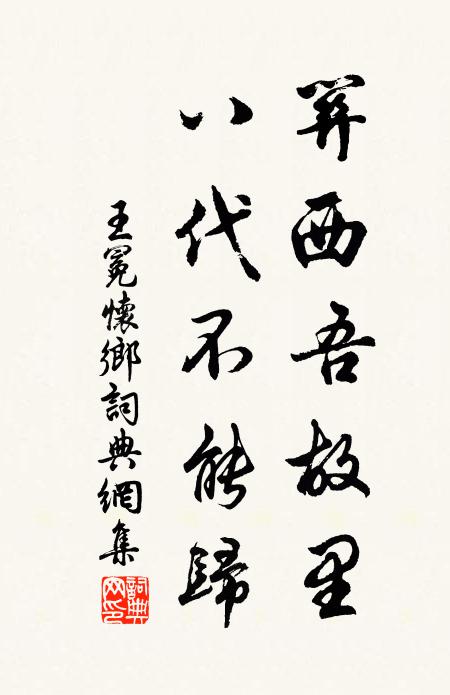 關西吾故里
八代不能歸
王冕懷鄉詞典網集
詞典
网印